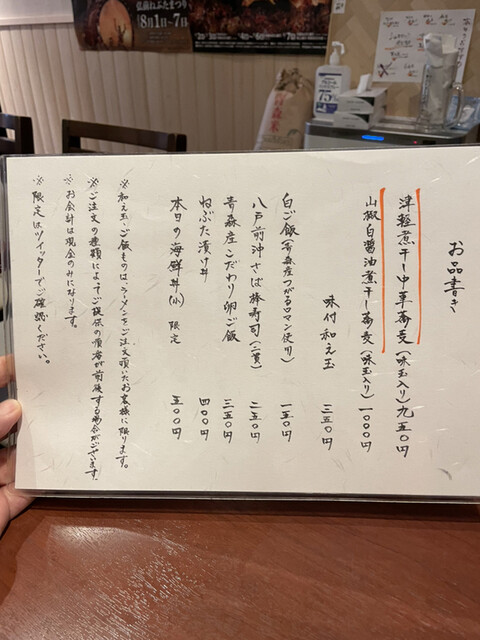 お品書き
津軽煮干し中華蕎麦(味玉入り)九五〇円
山椒白醤油煮干し蕎麦(味玉入り)一〇〇〇円
味付和え玉 三五〇円
白ご飯(青森産つがるロマン使用) 一五〇円
八戸前沖さば棒寿司(二貫) 二五〇円
青森産こだわり卵ご飯 三五〇円
ねぶた漬け丼 四〇〇円
本日の海鮮丼(小) 限定 五〇〇円
※和え玉、ご飯ものは、ラーメンをご注文頂いたお客様に限ります。
※ご注文の種類によってご提供の順番が前後する場合がございます。
※お会計は現金のみになります。
※限定はツイッターでご確認ください。
弘前ねぷたまつり
8月1日〜7日